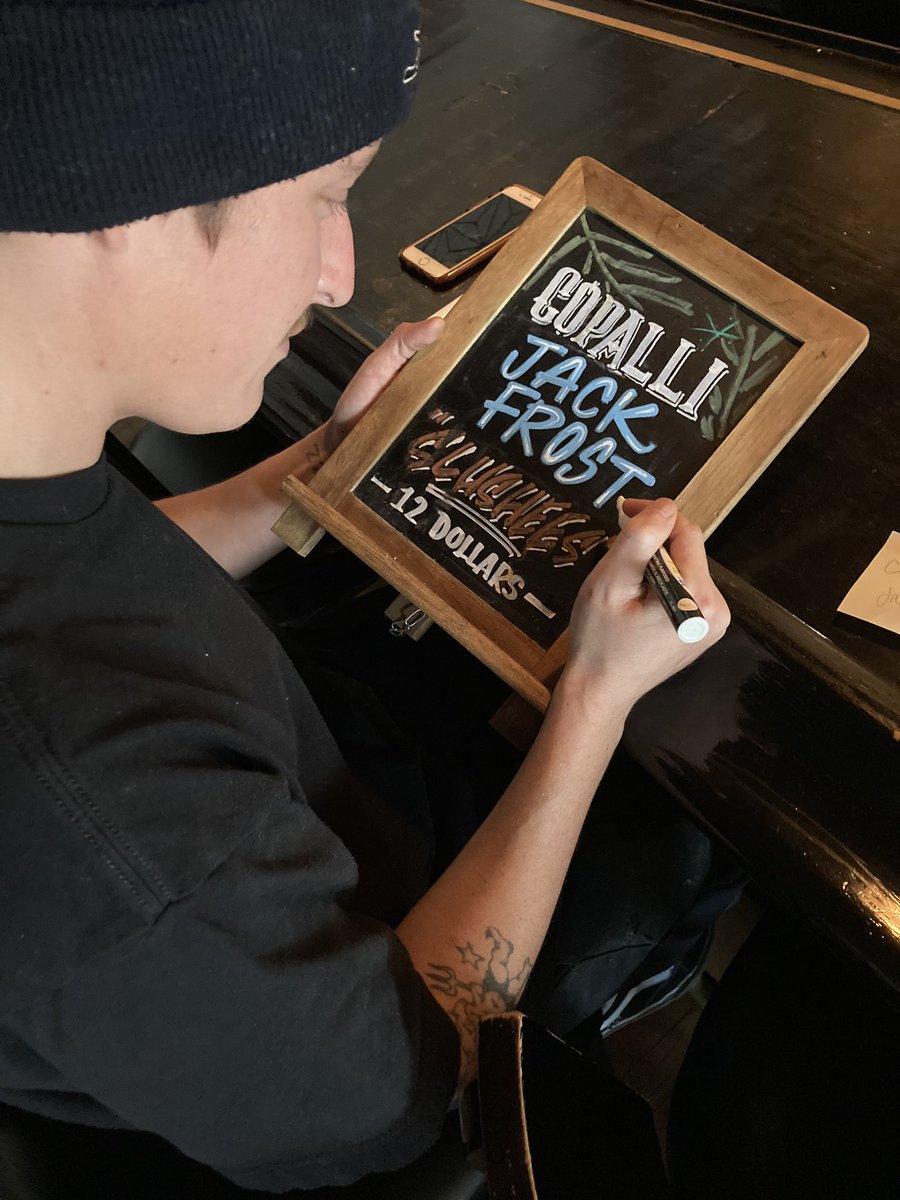 COPALLI
JACK
FROST
"SLUSHEES"
— 12 DOLLARS —